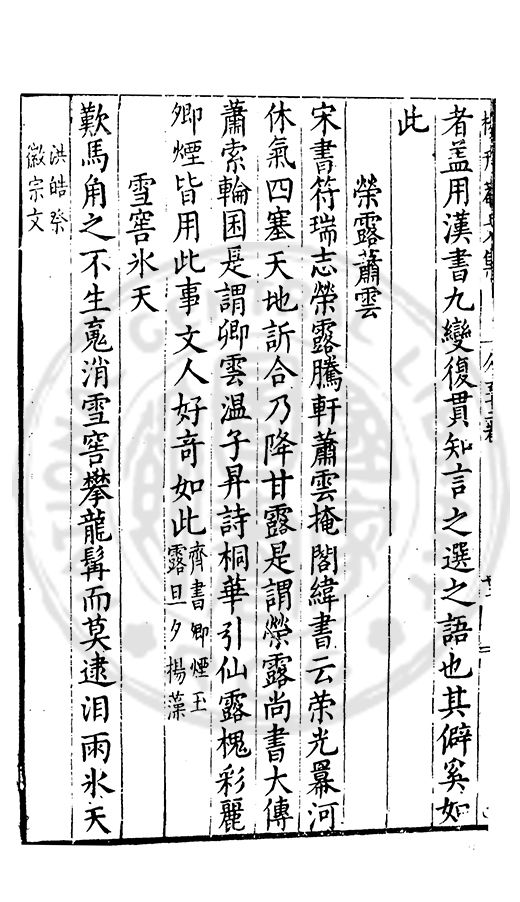 者葢用漢書九變復貫知言之選之語也其僻奚如
此
榮露蕭雲
宋書符瑞志榮露騰軒蕭雲掩閣緯書云荣光羃河
休氣四塞天地訢合乃降甘露是謂榮露尚書大傳
蕭索輪囷是謂卿雲温子昇詩桐華引仙露槐彩麗
卿煙皆用此事文人好竒如此齊書卿煙玉
露旦夕揚藻
雪窖氷天
歎馬角之不生䰟消雪窖攀龍髯而莫逮泪雨氷天
洪皓祭
徽宗文